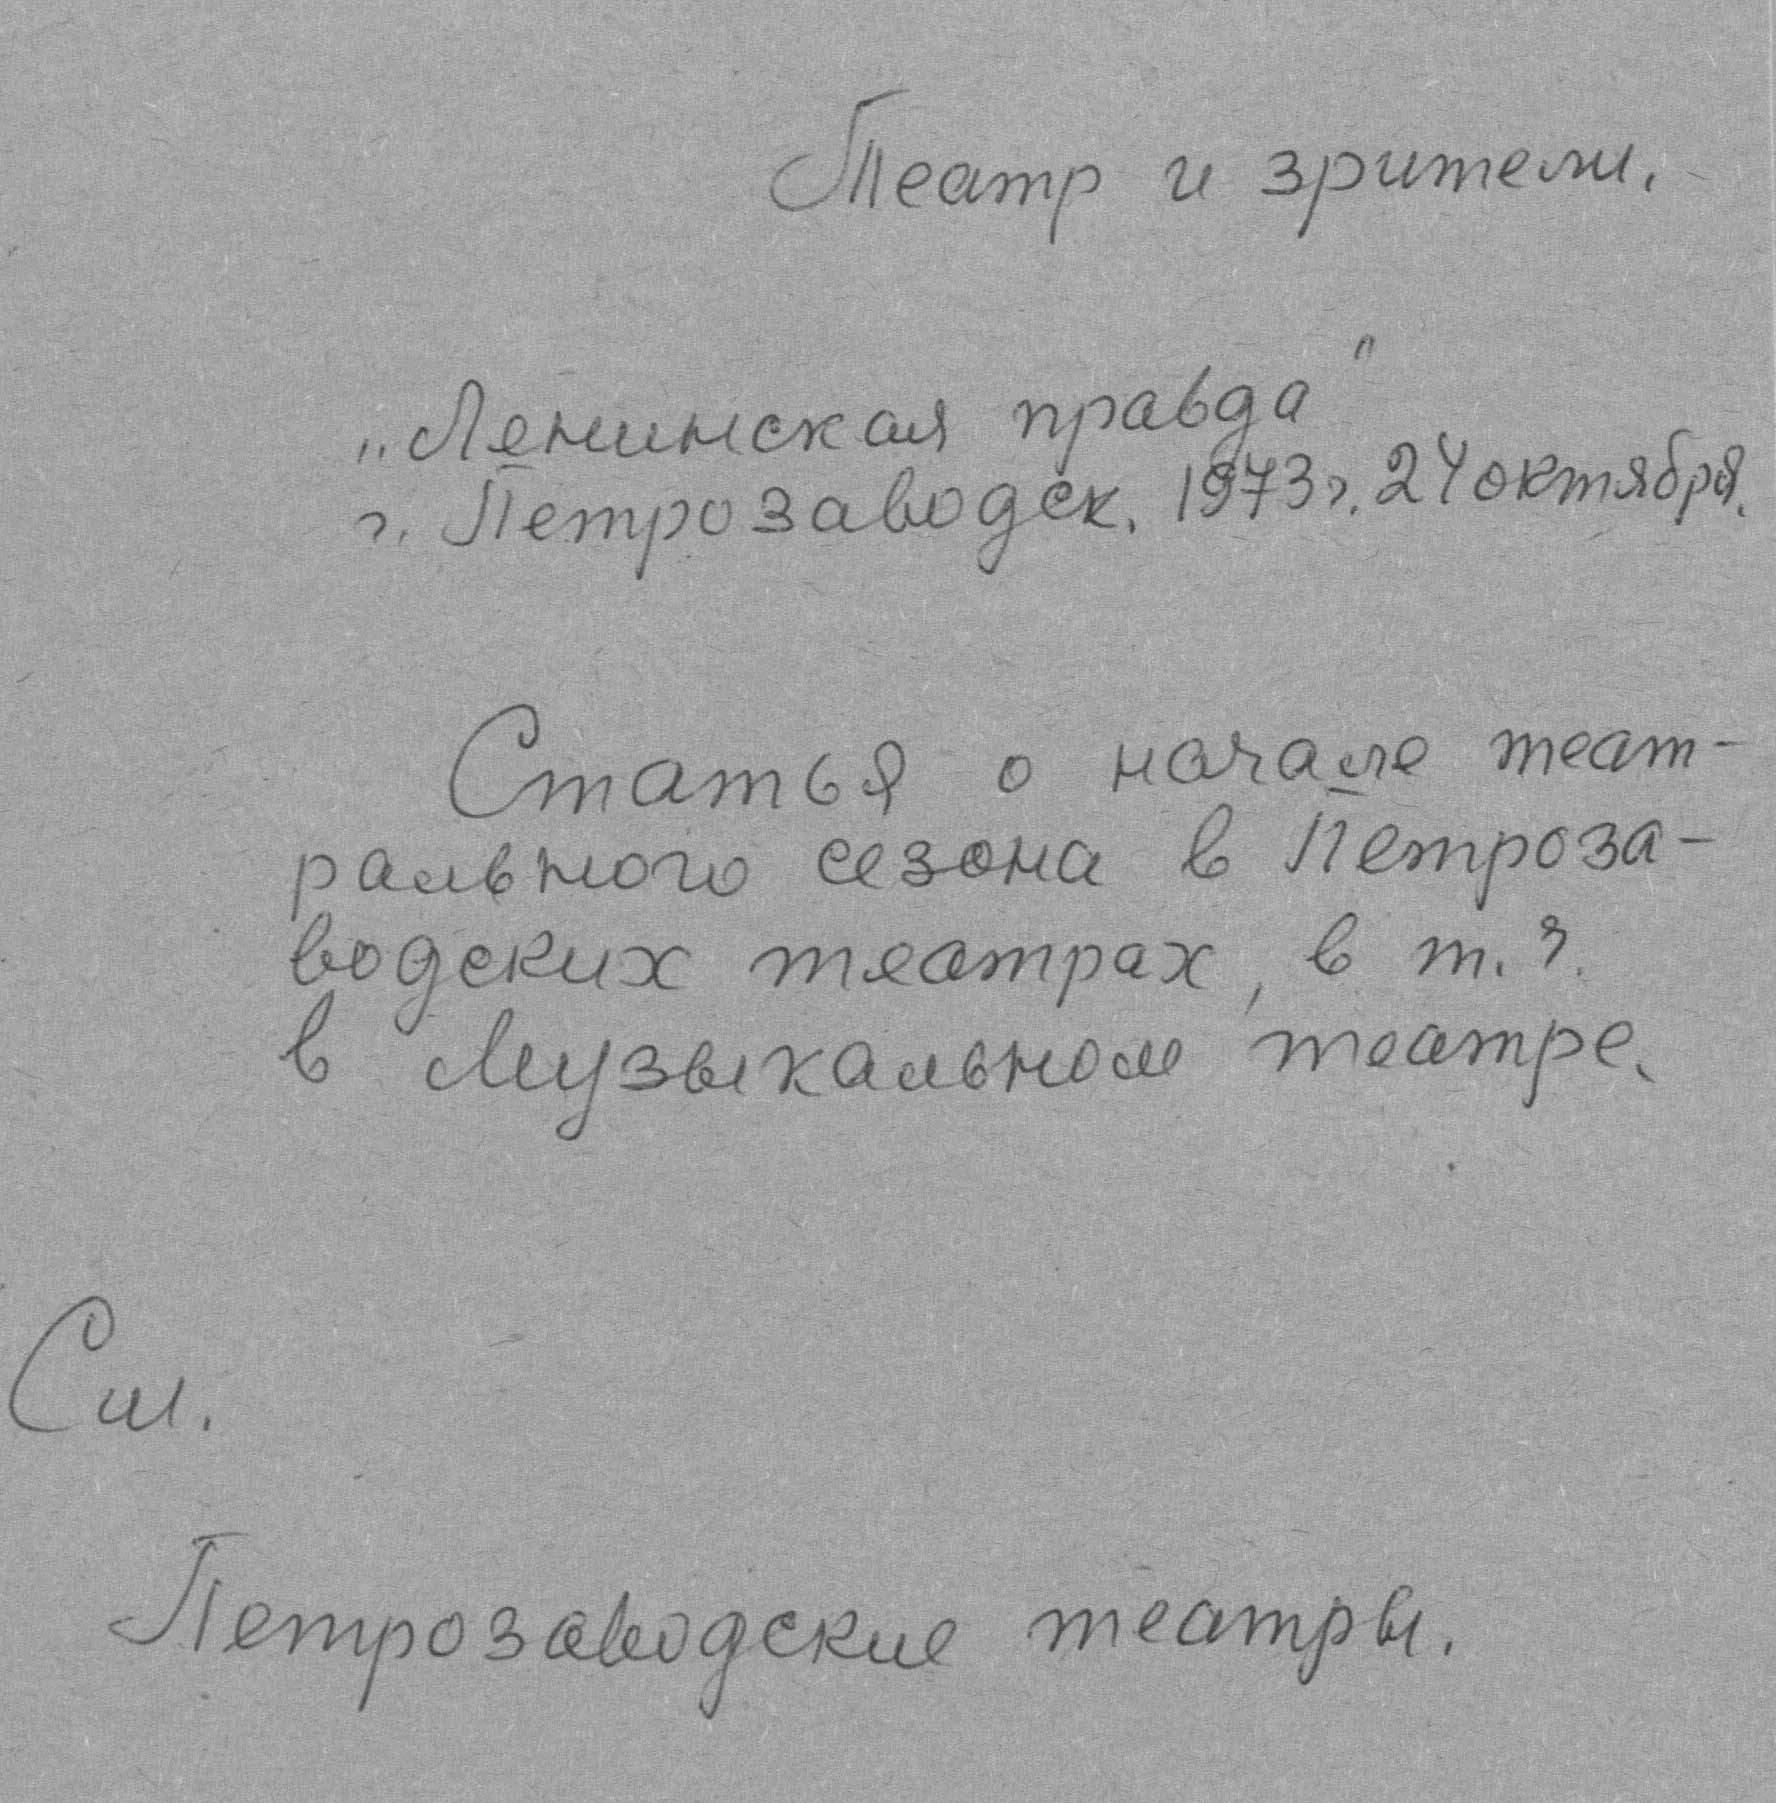 Театр и зрители.
„Ленинская правда"
г. Петрозаводск. 1973 г. 24 октября.
Статья о начале теат-
рального сезона в Петроза-
водских театрах, в т. ч.
в Музыкальном театре.
См.
Петрозаводские театры.